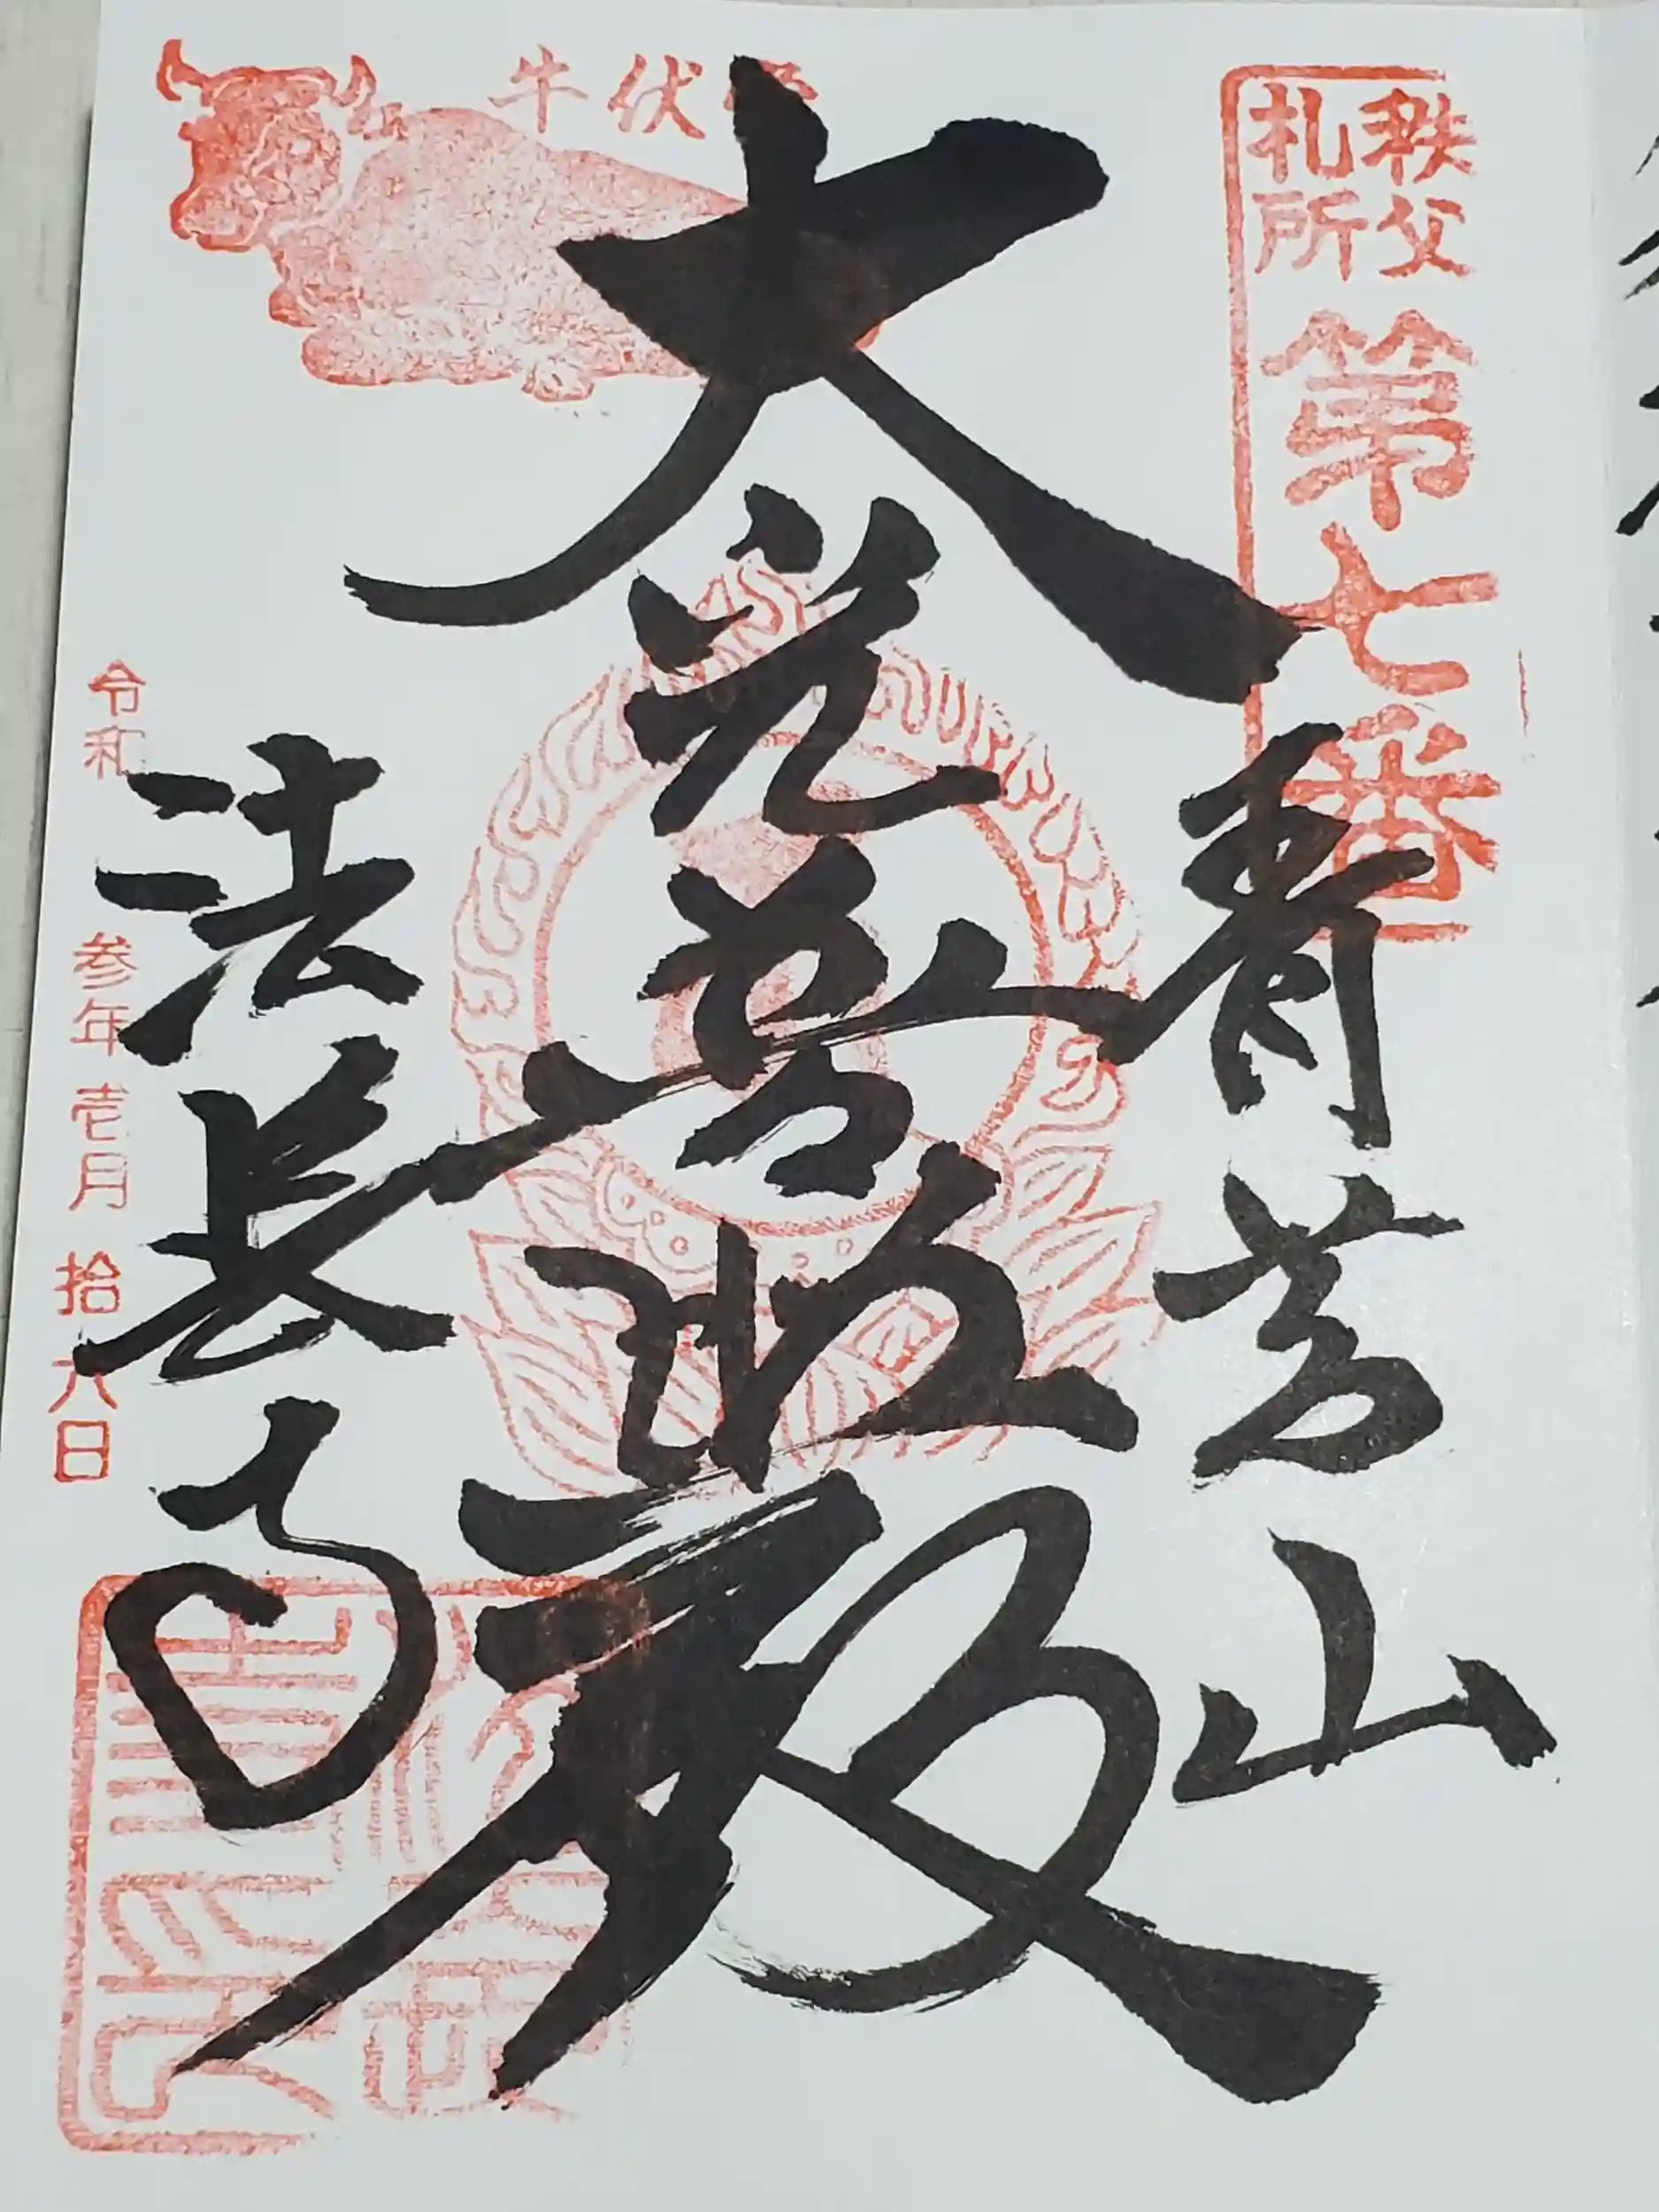 秩父
札所
第七番
青苔山
牛伏堂
大光普照殿
法長寺
令和参年壱月拾六日